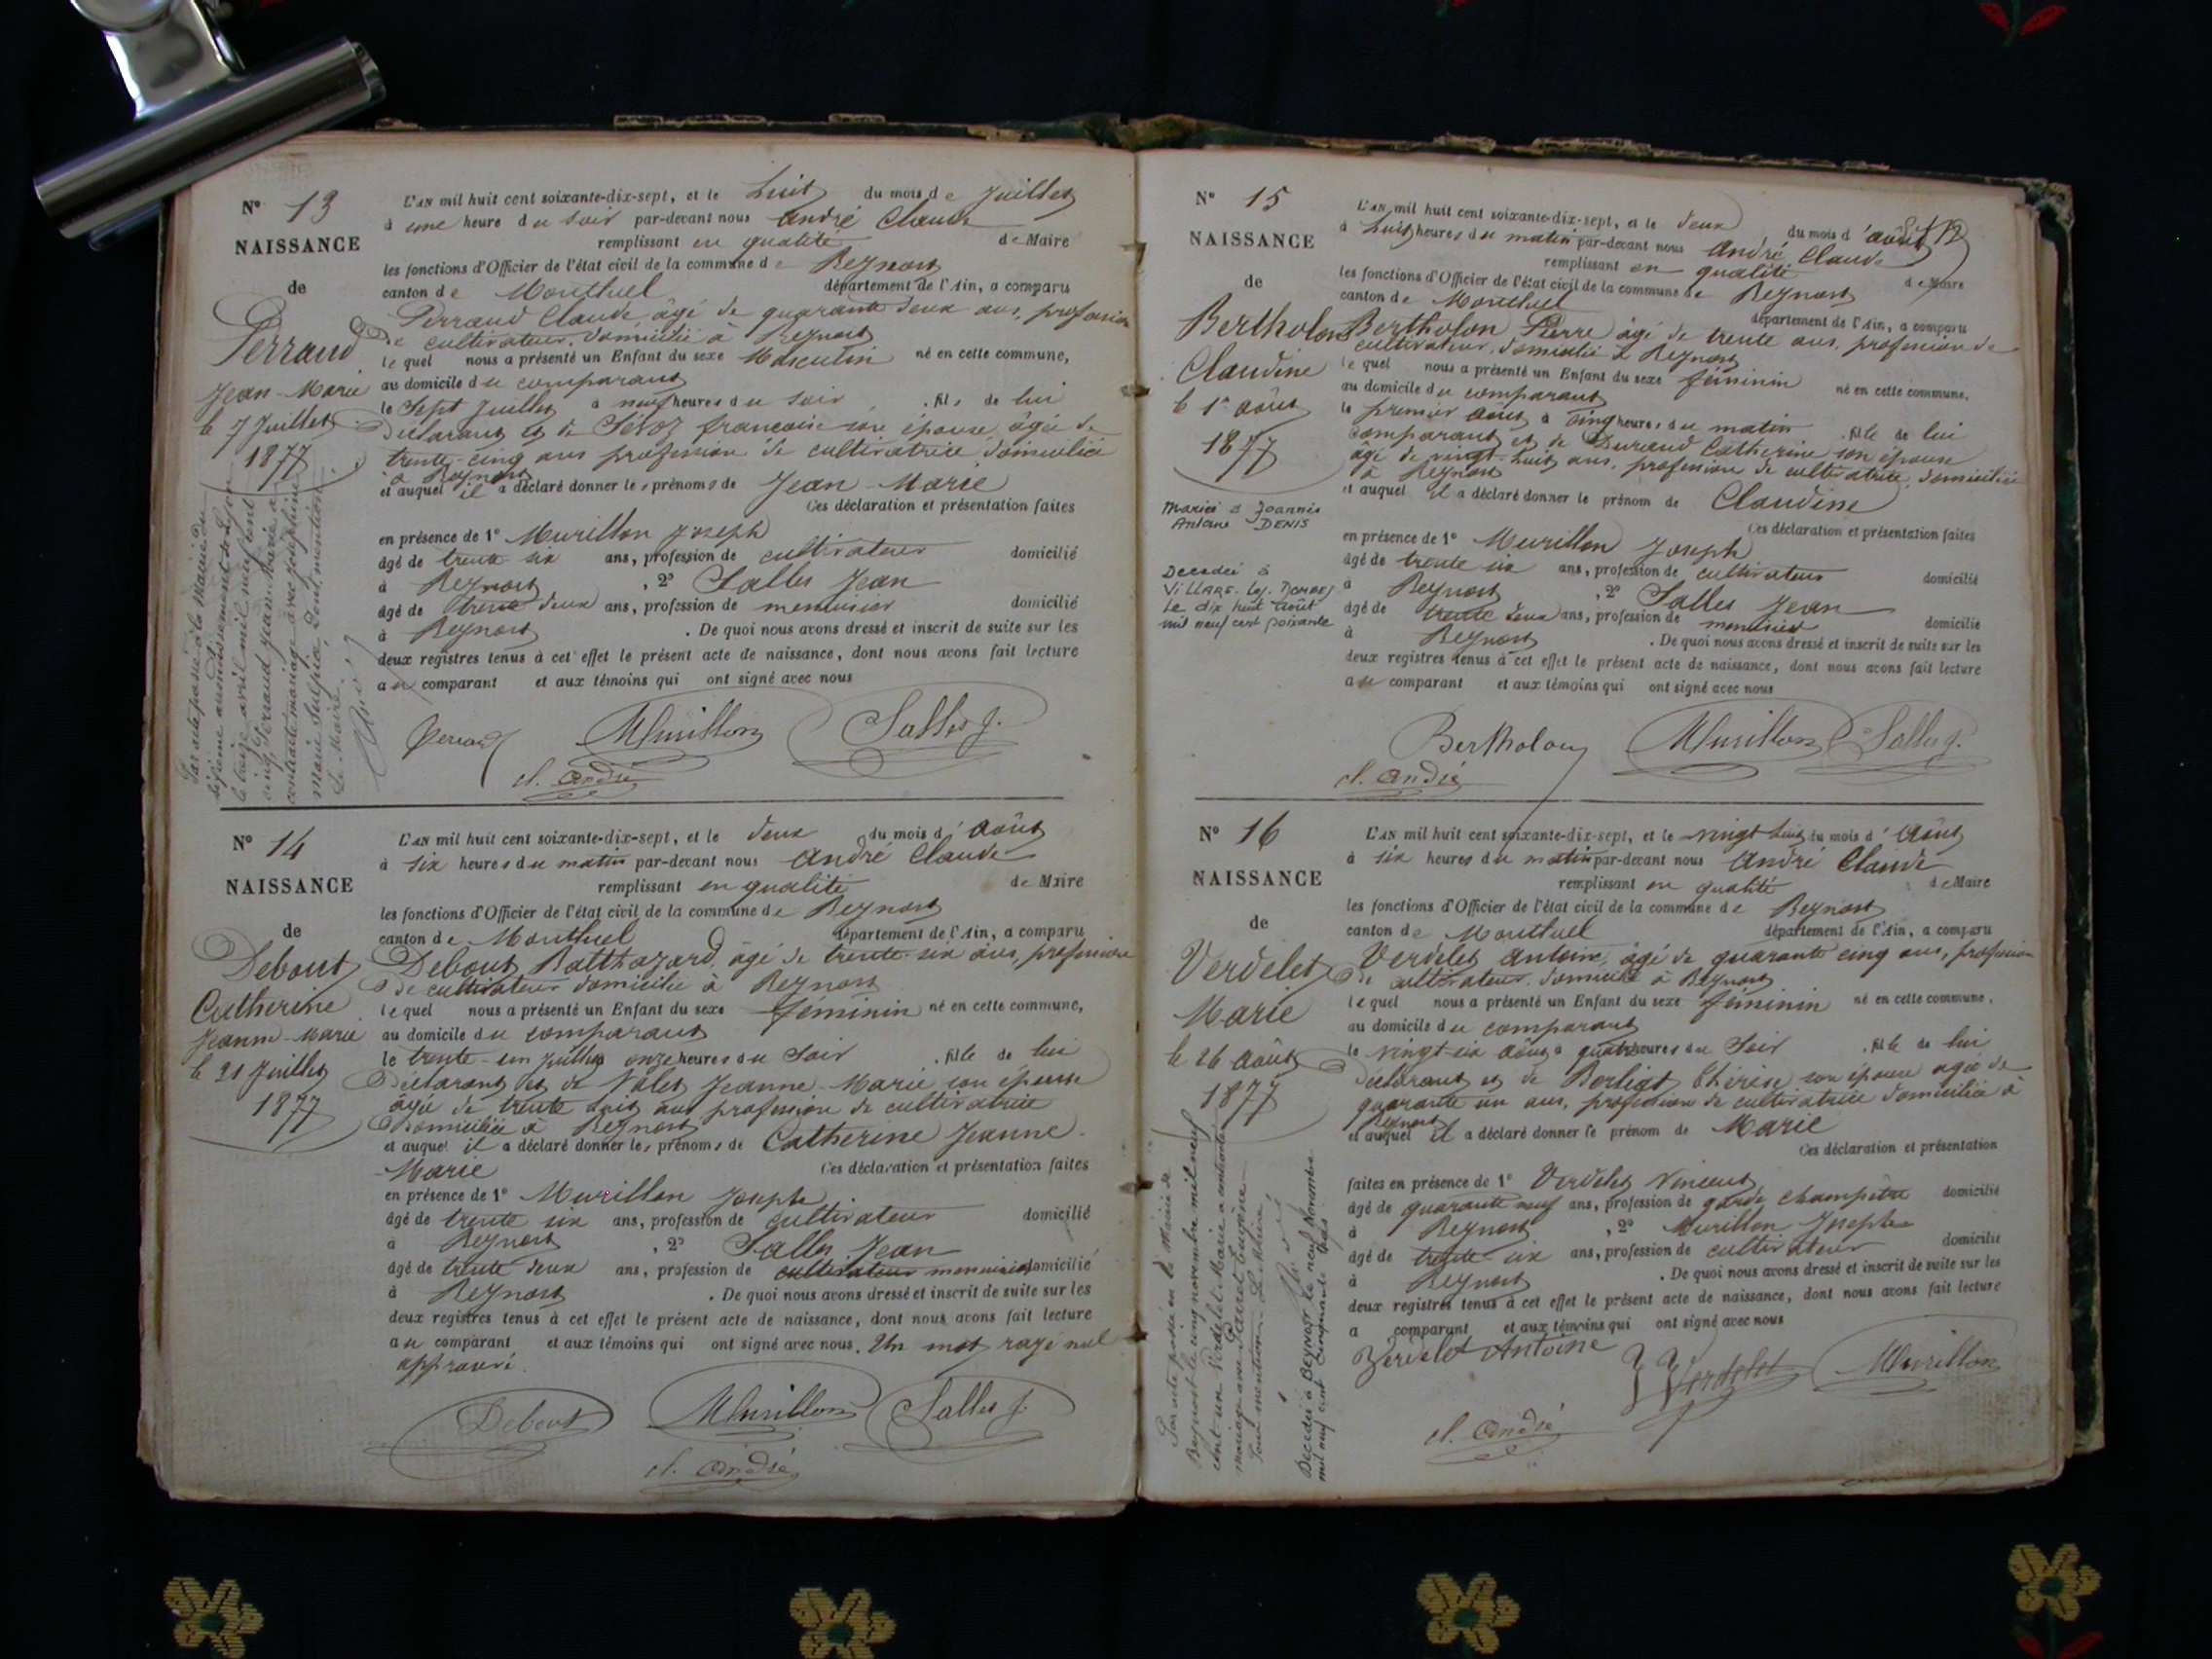 N° 13
NAISSANCE
de
Perraud
Jean-Marie
le 7 Juillet
1877
L'AN mil huit cent soixante-dix-sept, et le huit du mois de Juillet
à une heure du soir par-devant nous André Claude
remplissant en qualité de Maire
les fonctions d'Officier de l'état civil de la commune de Beynost
canton de Montluel département de l'Ain, a comparu
Perraud Claude âgé de quarante deux ans, profession
de cultivateur, domicilié à Beynost
lequel nous a présenté un Enfant du sexe Masculin né en cette commune,
au domicile du comparant
le sept Juillet à neuf heures du soir , fils de lui
Déclarant et de françoise son épouse âgée de
trente-cinq ans profession de cultivatrice domiciliée
à Beynost
et auquel il a déclaré donner les prénoms de Jean-Marie
Ces déclaration et présentation faites
en présence de 1° Murillon Joseph
âgé de trente six ans, profession de cultivateur domicilié
à Beynost , 2° Salles Jean
âgé de trente deux ans, profession de menuisier domicilié
à Beynost . De quoi nous avons dressé et inscrit de suite sur les
deux registres tenus à cet effet le présent acte de naissance, dont nous avons fait lecture
au comparant et aux témoins qui ont signé avec nous
Perraud Murillon Salles J.
cl. André
Par acte passé à la Mairie du
arrondissement de Lyon
le treize avril mil neuf cent
cinq Perraud Jean-Marie a
contracté mariage avec Joséphine
Marie Dont mention.
Le Maire.
N° 14
NAISSANCE
de
Debout
Catherine
Jeanne-Marie
le 31 Juillet
1877
L'AN mil huit cent soixante-dix-sept, et le deux du mois d'Août
à six heures du matin par-devant nous André Claude
remplissant en qualité de Maire
les fonctions d'Officier de l'état civil de la commune de Beynost
canton de Montluel département de l'Ain, a comparu
Debout Balthazard âgé de trente-six ans, profession
de cultivateur domicilié à Beynost
lequel nous a présenté un Enfant du sexe féminin né en cette commune,
au domicile du comparant
le trente-un Juillet à onze heures du soir , fille de lui
Déclarant et de Valet Jeanne-Marie son épouse
âgée de trente huit ans profession de cultivatrice
Domiciliée à Beynost
et auquel il a déclaré donner les prénoms de Catherine Jeanne-
Marie Ces déclaration et présentation faites
en présence de 1° Murillon Joseph
âgé de trente six ans, profession de cultivateur domicilié
à Beynost , 2° Salles Jean
âgé de trente deux ans, profession de cultivateur menuisier domicilié
à Beynost . De quoi nous avons dressé et inscrit de suite sur les
deux registres tenus à cet effet le présent acte de naissance, dont nous avons fait lecture
au comparant et aux témoins qui ont signé avec nous. Un mot rayé nul
approuvé.
Debout Murillon Salles J.
cl. André
N° 15
NAISSANCE
de
Bertholon
Claudine
le 1er août
1877
Mariée à Joannis
Antoine DENIS
Décédée à
VILLARS. les. DOMBES
Le dix huit août
mil neuf cent soixante
L'AN mil huit cent soixante-dix-sept, et le deux du mois d'août
à huit heures du matin par-devant nous André Claude
remplissant en qualité de Maire
les fonctions d'Officier de l'état civil de la commune de Beynost
canton de Montluel département de l'Ain, a comparu
Bertholon Pierre âgé de trente ans, profession de
cultivateur, domicilié à Beynost
lequel nous a présenté un Enfant du sexe féminin né en cette commune,
au domicile du comparant
le premier août à cinq heures du matin , fille de lui
comparant et de Durand Catherine son épouse
âgé de vingt-huit ans, profession de cultivatrice, domiciliée
à Beynost
et auquel il a déclaré donner le prénom de Claudine
Ces déclaration et présentation faites
en présence de 1° Murillon Joseph
âgé de trente six ans, profession de cultivateur domicilié
à Beynost , 2° Salles Jean
âgé de trente deux ans, profession de menuisier domicilié
à Beynost . De quoi nous avons dressé et inscrit de suite sur les
deux registres tenus à cet effet le présent acte de naissance, dont nous avons fait lecture
au comparant et aux témoins qui ont signé avec nous
Bertholon Murillon Salles J.
cl. André
N° 16
NAISSANCE
de
Verdelet
Marie
le 26 Août
1877
L'AN mil huit cent soixante-dix-sept, et le vingt huit du mois d'Août
à six heures du matin par-devant nous André Claude
remplissant en qualité de Maire
les fonctions d'Officier de l'état civil de la commune de Beynost
canton de Montluel département de l'Ain, a comparu
Verdelet Antoine, âgé de quarante cinq ans, profession
de cultivateur, domicilié à Beynost
lequel nous a présenté un Enfant du sexe féminin né en cette commune,
au domicile du comparant
le vingt-six août à quatre heures du Soir , fille de lui
Déclarant et de Berliat Thérèse son épouse agée de
quarante un ans, profession de cultivatrice domiciliée à
Beynost
et auquel il a déclaré donner le prénom de Marie
Ces déclaration et présentation
faites en présence de 1° Verdelet Vincent
âgé de quarante neuf ans, profession de garde champêtre domicilié
à Beynost , 2° Murillon Joseph
âgé de trente six ans, profession de cultivateur domicilié
à Beynost . De quoi nous avons dressé et inscrit de suite sur les
deux registres tenus à cet effet le présent acte de naissance, dont nous avons fait lecture
a comparant et aux témoins qui ont signé avec nous
Verdelet Antoine Verdelet Murillon
cl. André
Par acte passé en la Mairie de
Beynost le cinq novembre mil neuf
cent un Verdelet Marie a contracté
mariage avec Eugène
Pour mention - Le Maire
Décédée à BEYNOST le neuf Novembre
mil neuf cent cinquante trois